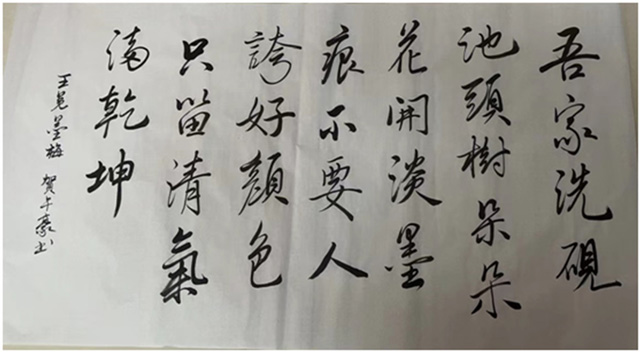 吾家洗硯
池頭樹朵朵
花開淡墨
痕不要人
誇好顏色
只留清氣
滿乾坤
王冕墨梅 賀卡豪书